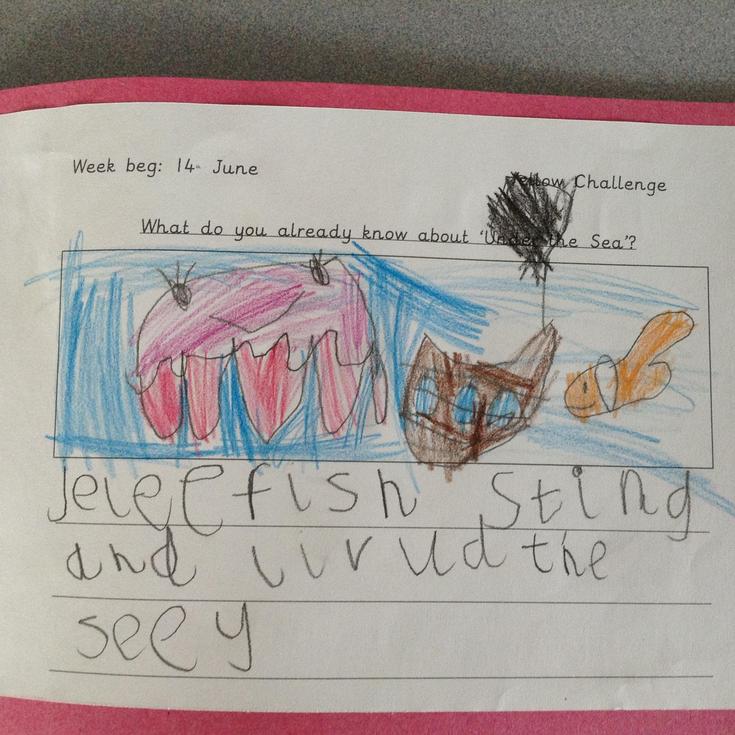 Week beg: 14 June
Yellow Challenge
What do you already know about 'Under the Sea'?
Jeleefish Sting
and livrud the
seey